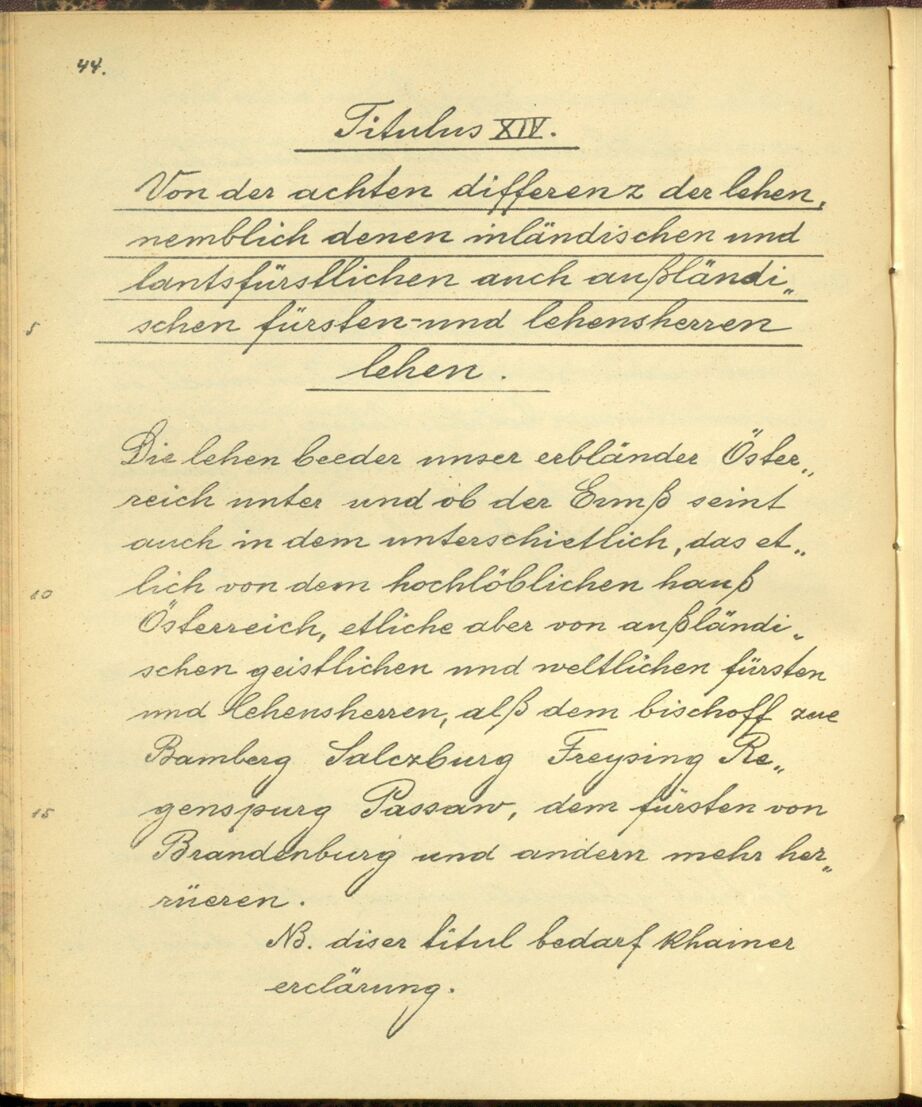 44.
Titulus XIV.
Von der achten differenz der lehen,
nemblich denen inländischen und
lantsfürstlichen auch außländi„
5 schen fürsten- und lehensherren
lehen.
Die lehen beeder unser erbländer Öster„
reich unter und ob der Ennß seint
auch in dem unterschietlich, das et„
10 lich von dem hochlöblichen hauß
Österreich, etliche aber von außländi„
schen geistlichen und weltlichen fürsten
und lehensherren, alß dem bischoff zue
Bamberg Salczburg Freysing Re„
15 genspurg Passaw, dem fürsten von
Brandenburg und andern mehr her„
rüeren.
NB. diser titul bedarf khainer
erclärung.